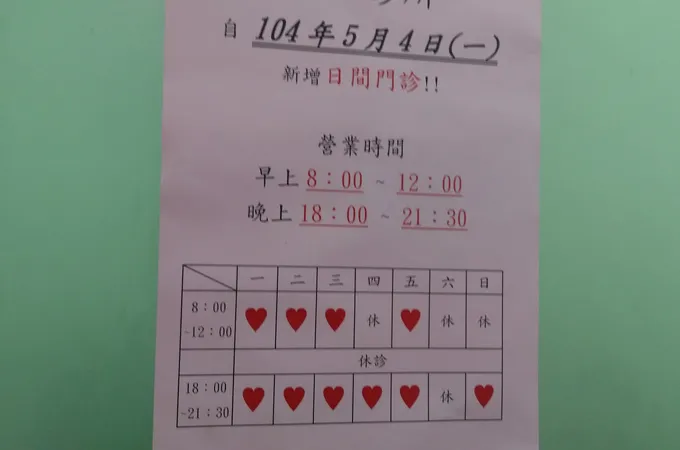 自 104年5月4日(一)
新增日間門診!!
營業時間
早上 8:00 ~ 12:00
晚上 18:00 ~ 21:30
一 二 三 四 五 六 日
8:00 ~12:00 ♥ ♥ ♥ 休 ♥ 休 休
休診
18:00 ~21:30 ♥ ♥ ♥ ♥ ♥ 休 ♥